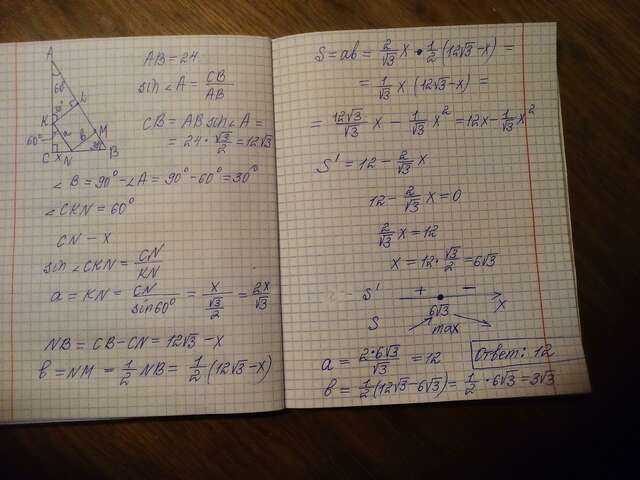 A
60°
30°
L
K
60°
a
b
M
30°
C
x
N
B
AB = 24
sin∠A = CB/AB
CB = AB sin∠A =
= 24 · √3/2 = 12√3
∠B = 90° - ∠A = 90° - 60° = 30°
∠CKN = 60°
CN - x
sin∠CKN = CN/KN
a = KN = CN/sin60° = x/(√3/2) = 2x/√3
NB = CB - CN = 12√3 - x
b = NM = 1/2 NB = 1/2 (12√3 - x)
S = ab = 2/√3 x · 1/2 (12√3 - x) =
= 1/√3 x (12√3 - x) =
= 12√3/√3 x - 1/√3 x² = 12x - 1/√3 x²
S' = 12 - 2/√3 x
12 - 2/√3 x = 0
2/√3 x = 12
x = 12 · √3/2 = 6√3
S' + -
6√3 x
S max
a = 2·6√3/√3 = 12
Ответ: 12
b = 1/2 (12√3 - 6√3) = 1/2 · 6√3 = 3√3